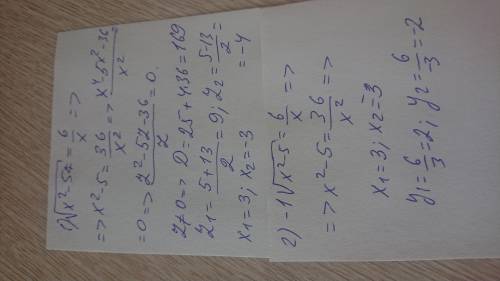 1) √x²-5x = 6/x =>
=> x²-5 = 36/x² => x⁴-5x²-36/x²
=0 => z²-5z-36/z =0.
z≠0 => D=25+4.36=169
z₁= 5+13/2 =9; z₂= 5-13/2 =
=-4
x₁=3; x₂=-3
2) -1√x²5 = 6/x =>
=> x²-5= 36/x² =>
x₁=3; x₂=3
y₁= 6/3 =2; y₂= 6/3 =-2